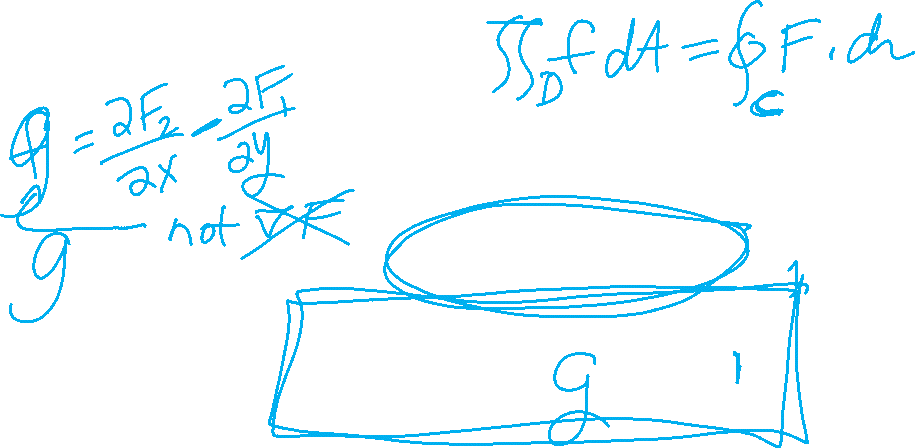 ∬_D f dA = ∮_C F · dr
g = ∂F₂/∂x - ∂F₁/∂y
g not
g 1